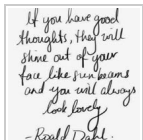 If you have good
thoughts, they will
shine out of your
face like sunbeams
and you will always
look lovely
- Roald Dahl.